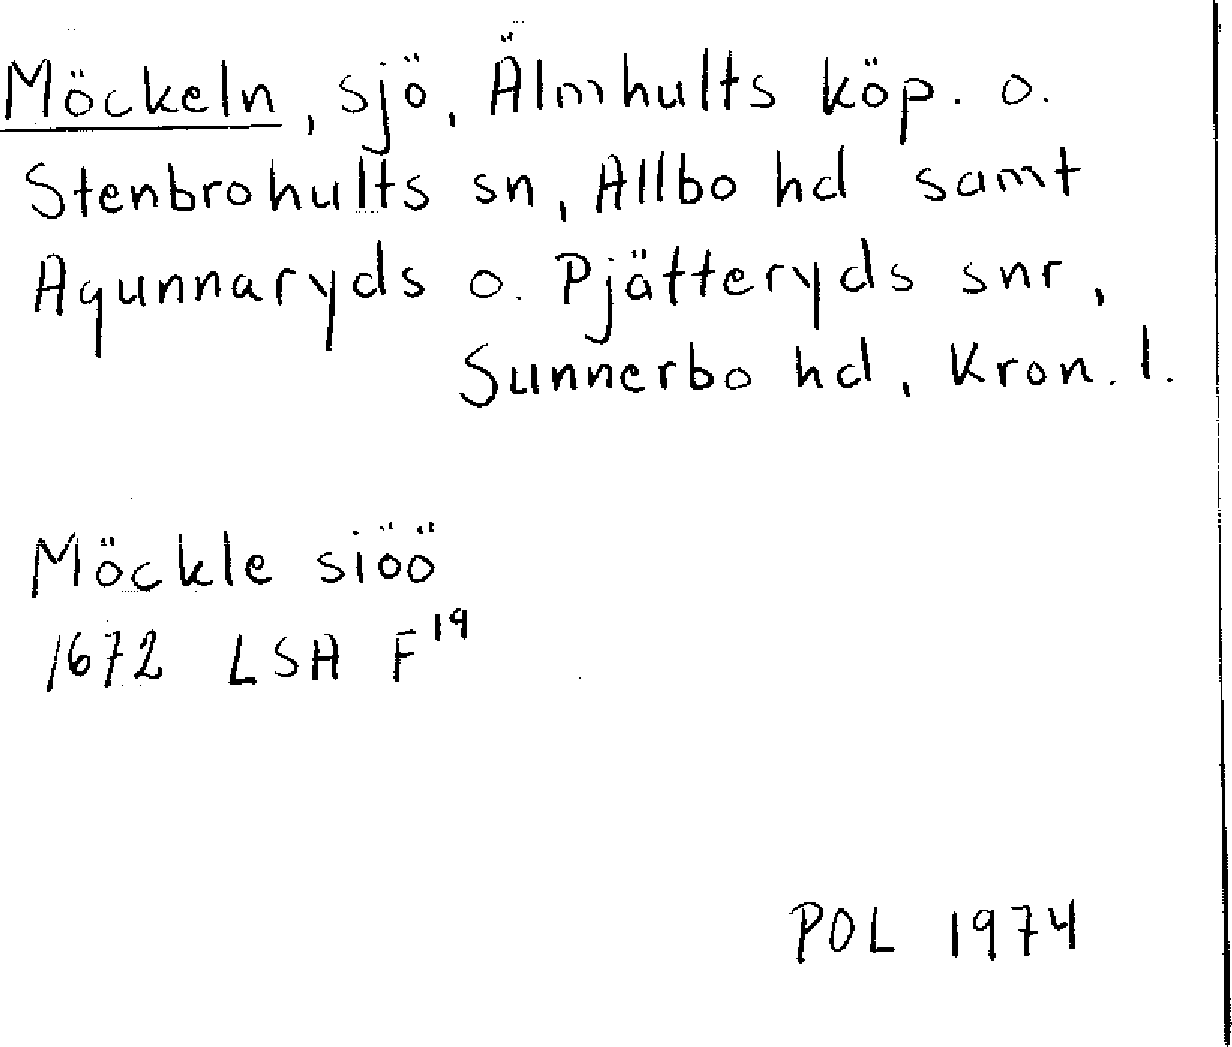 Möckeln, sjö, Älmhults köp. o.
Stenbrohults sn, Allbo hd samt
Agunnaryds o. Pjätteryds snr,
Sunnerbo hd, Kron. l.
Möckle siöö
1672 LSA F¹⁹
POL 1974